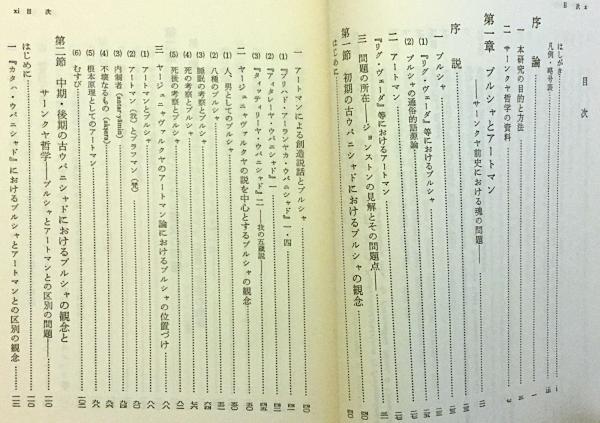 目次
はしがき
凡例・略号表
序論
一 本研究の目的と方法
二 サーンクヤ哲学の資料
第一章 プルシャとアートマン
——サーンクヤ前史における魂の問題——
序説
一 プルシャ
(1) 『リグ・ヴェーダ』等におけるプルシャ
(2) プルシャの通俗的語源論
二 アートマン
『リグ・ヴェーダ』等におけるアートマン
三 問題の所在——ジョンストンの見解とその問題点——
第一節 初期の古ウパニシャドにおけるプルシャの観念
はじめに
目次 xi
一 アートマンによる創造説話とプルシャ
(1) 『ブリハド・アーランヤカ・ウパニシャド』一・四
(2) 『アイタレーヤ・ウパニシャド』一
(3) 『タイッティリーヤ・ウパニシャド』二——我の五蔵説——
二 ヤージュニャヴァルクヤの説を中心とするプルシャの観念
(1) 人、男としてのプルシャ
(2) 八種のプルシャ
(3) 睡眠の考察とプルシャ
(4) 死の考察とプルシャ
(5) 死後の考察とプルシャ
三 ヤージュニャヴァルクヤのアートマン論におけるプルシャの位置づけ
(1) アートマンとプルシャ
(2) アートマン(我)とブラフマン(梵)
(3) 内制者(antar-yāmin)
(4) 不壊なるもの(akṣara)
(5) 根本原理としてのアートマン
(6) むすび
第二節 中期・後期の古ウパニシャドにおけるプルシャの観念と
サーンクヤ哲学——プルシャとアートマンとの区別の問題——
はじめに
一 『カタ・ウパニシャド』におけるプルシャとアートマンとの区別の観念